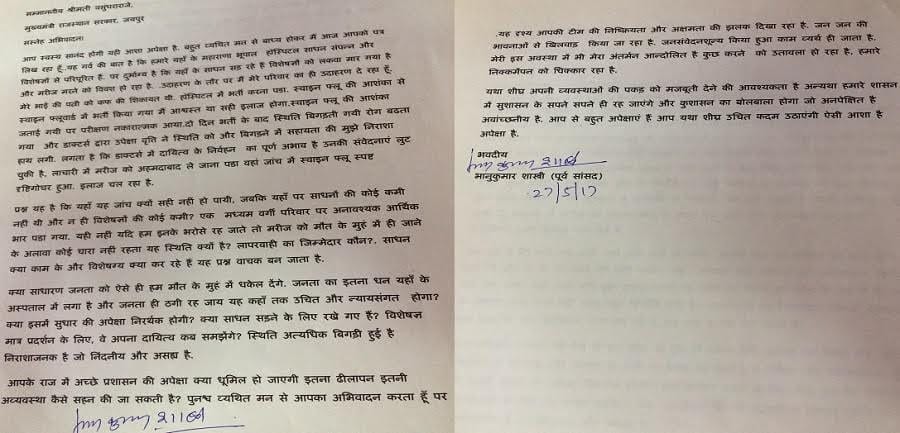 सम्माननीय श्रीमती वसुंधराराजे,
मुख्यमंत्री राजस्थान सरकार, जयपुर
सस्नेह अभिवादन!
आप स्वस्थ सानंद होगी यही आशा अपेक्षा है. बहुत व्यथित मन से बाध्य होकर में आज आपको पत्र
लिख रहा हूँ.यह गर्व की बात है कि हमारे यहाँ के महाराणा भूपाल हॉस्पिटल साधन संपन्न और
विशेषज्ञों से परिपूरित है. पर दुर्भाग्य है कि यहाँ के साधन सड रहे हैं विशेषज्ञों को लकवा मार गया है
और मरीज मरने को विवश हो रहा है. .उदाहरण के तौर पर में मेरे परिवार का ही उदाहरण दे रहा हूँ.
मेरे भाई की पत्नी को कफ की शिकायत थी. हॉस्पिटल में भर्ती करना पडा. स्वाइन फ्लू की आशंका से
स्वाइन फ्लूवार्ड में भर्ती किया गया में आश्वस्त था सही इलाज होगा.स्वाइन फ्लू की आशंका
जताई गयी पर परीक्षण नकारात्मक आया.दो दिन भर्ती के बाद स्थिति बिगड़ती गयी रोग बढता
गया और डाक्टर्स द्वारा उपेक्षा वृत्ति ने स्थिति को और बिगड़ने में सहायता की मुझे निराशा
हाथ लगी. लगता है कि डाक्टर्स में दायित्व के निर्वहन का पूर्ण अभाव है उनकी संवेदनाएं लुट
चुकी है. लाचारी में मरीज को अहमदाबाद ले जाना पडा यहां जांच में स्वाइन फ्लू स्पष्ट
दृष्टिगोचर हुआ. इलाज चल रहा है.
प्रश्न यह है कि यहाँ यह जांच क्यों सही नही हो पायी, जबकि यहाँ पर साधनों की कोई कमी
नहीं थी और न ही विशेषज्ञों की कोई कमी? एक मध्यम वर्गी परिवार पर अनावश्यक आर्थिक
भार पडा गया. यही नही यदि हम इनके भरोसे रह जाते तो मरीज को मौत के मुहं में ही जाने
के अलावा कोई चारा नही रहता यह स्थिति क्यों है? लापरवाही का जिम्मेदार कौन?. साधन
क्या काम के और विशेषग्य क्या कर रहे हैं यह प्रश्न वाचक बन जाता है.
क्या साधारण जनता को ऐसे ही हम मौत के मुहं में धकेल देंगे. जनता का इतना धन यहाँ के
अस्पताल में लगा है और जनता ही ठगी रह जाय यह कहाँ तक उचित और न्यायसंगत होगा?
क्या इसमें सुधार की अपेक्षा निरर्थक होगी? क्या साधन सड़ने के लिए रखे गए हैं? विशेषज्ञ
मात्र प्रदर्शन के लिए, वे अपना दायित्व कब समझेंगे? स्थिति अत्यधिक बिगड़ी हुई है
निराशाजनक है जो निंदनीय और असह्य है.
आपके राज में अच्छे प्रशासन की अपेक्षा क्या धूमिल हो जाएगी इतना ढीलापन इतनी
अव्यवस्था कैसे सहन की जा सकती है? पुनश्च व्यथित मन से आपका अभिवादन करता हूँ पर
.यह दृश्य आपकी टीम की निष्क्रियता और अक्षमता की झलक दिखा रहा है. जन जन की
भावनाओं से खिलवाड़ किया जा रहा है. जनसंवेदनशून्य किया हुआ काम व्यर्थ ही जाता है.
मेरी इस अवस्था में भी मेरा अंतर्मन आन्दोलित है कुछ करने को उतावला हो रहा है, हमारे
निक्कमेपन को चिक्कार रहा है.
यथा शीघ्र अपनी व्यवस्थाओं की पकड़ को मजबूती देने की आवश्यकता है अन्यथा हमारे शासन
में सुशासन के सपने सपने ही रह जाएंगे और कुशासन का बोलबाला होगा जो अनपेक्षित है
अवांच्छनीय है. आप से बहुत अपेक्षाएं हैं आप यथा शीघ्र उचित कदम उठाएंगी ऐसी आशा है
अपेक्षा है.
भवदीय
भानुकुमार शास्त्री (पूर्व सांसद)
27/5/17